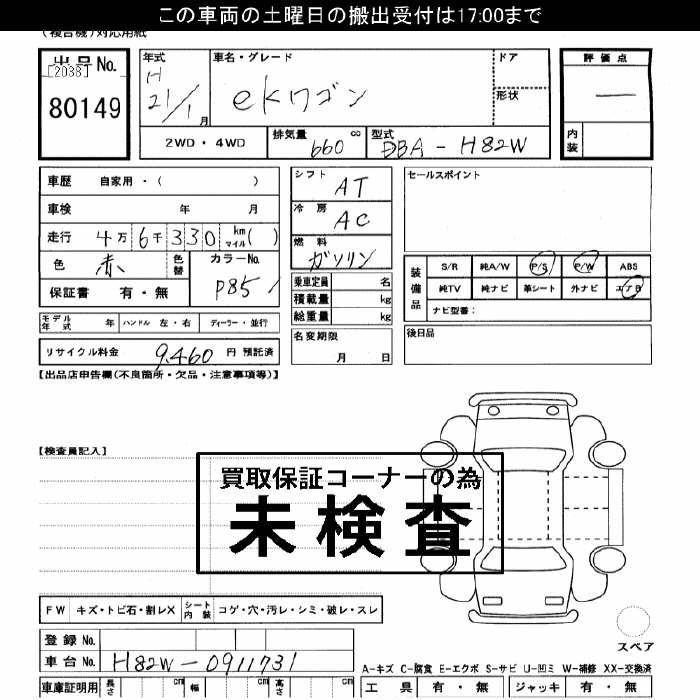 この車両の土曜日の搬出受付は17:00まで
(複合機)対応用紙
出品No.
[2038]
80149
年式
H
21/1月
車名・グレード
eKワゴン
ドア
形状
2WD・4WD
排気量
660 cc
型式
DBA-H82W
評価点
—
内装
車歴 自家用・( )
車検 年 月
走行 4万6千330 km マイル( )
色 赤 色替
カラーNo.
P85
保証書 有・無
シフト AT
冷房 AC
燃料 ガソリン
乗車定員 名
積載量 kg
総重量 kg
セールスポイント
装備品
S/R 純A/W P/S P/W ABS
純TV 純ナビ 革シート 外ナビ エアB
ナビ型番:
モデル年式 年 ハンドル 左・右 ディーラー・並行
リサイクル料金 9,460 円 預託済
名変期限
月 日
後日品
【出品店申告欄(不良箇所・欠品・注意事項等)】
【検査員記入】
買取保証コーナーの為
未検査
FW キズ・トビ石・割レX シート内装 コゲ・穴・汚レ・シミ・破レ・スレ
スペア
登録No.
車台No. H82W-0911731
A-キズ C-腐食 E-エクボ S-サビ U-凹ミ W-補修 XX-交換済
車庫証明用 長さ cm 幅 cm 高さ cm
工具 有・無 ジャッキ 有・無